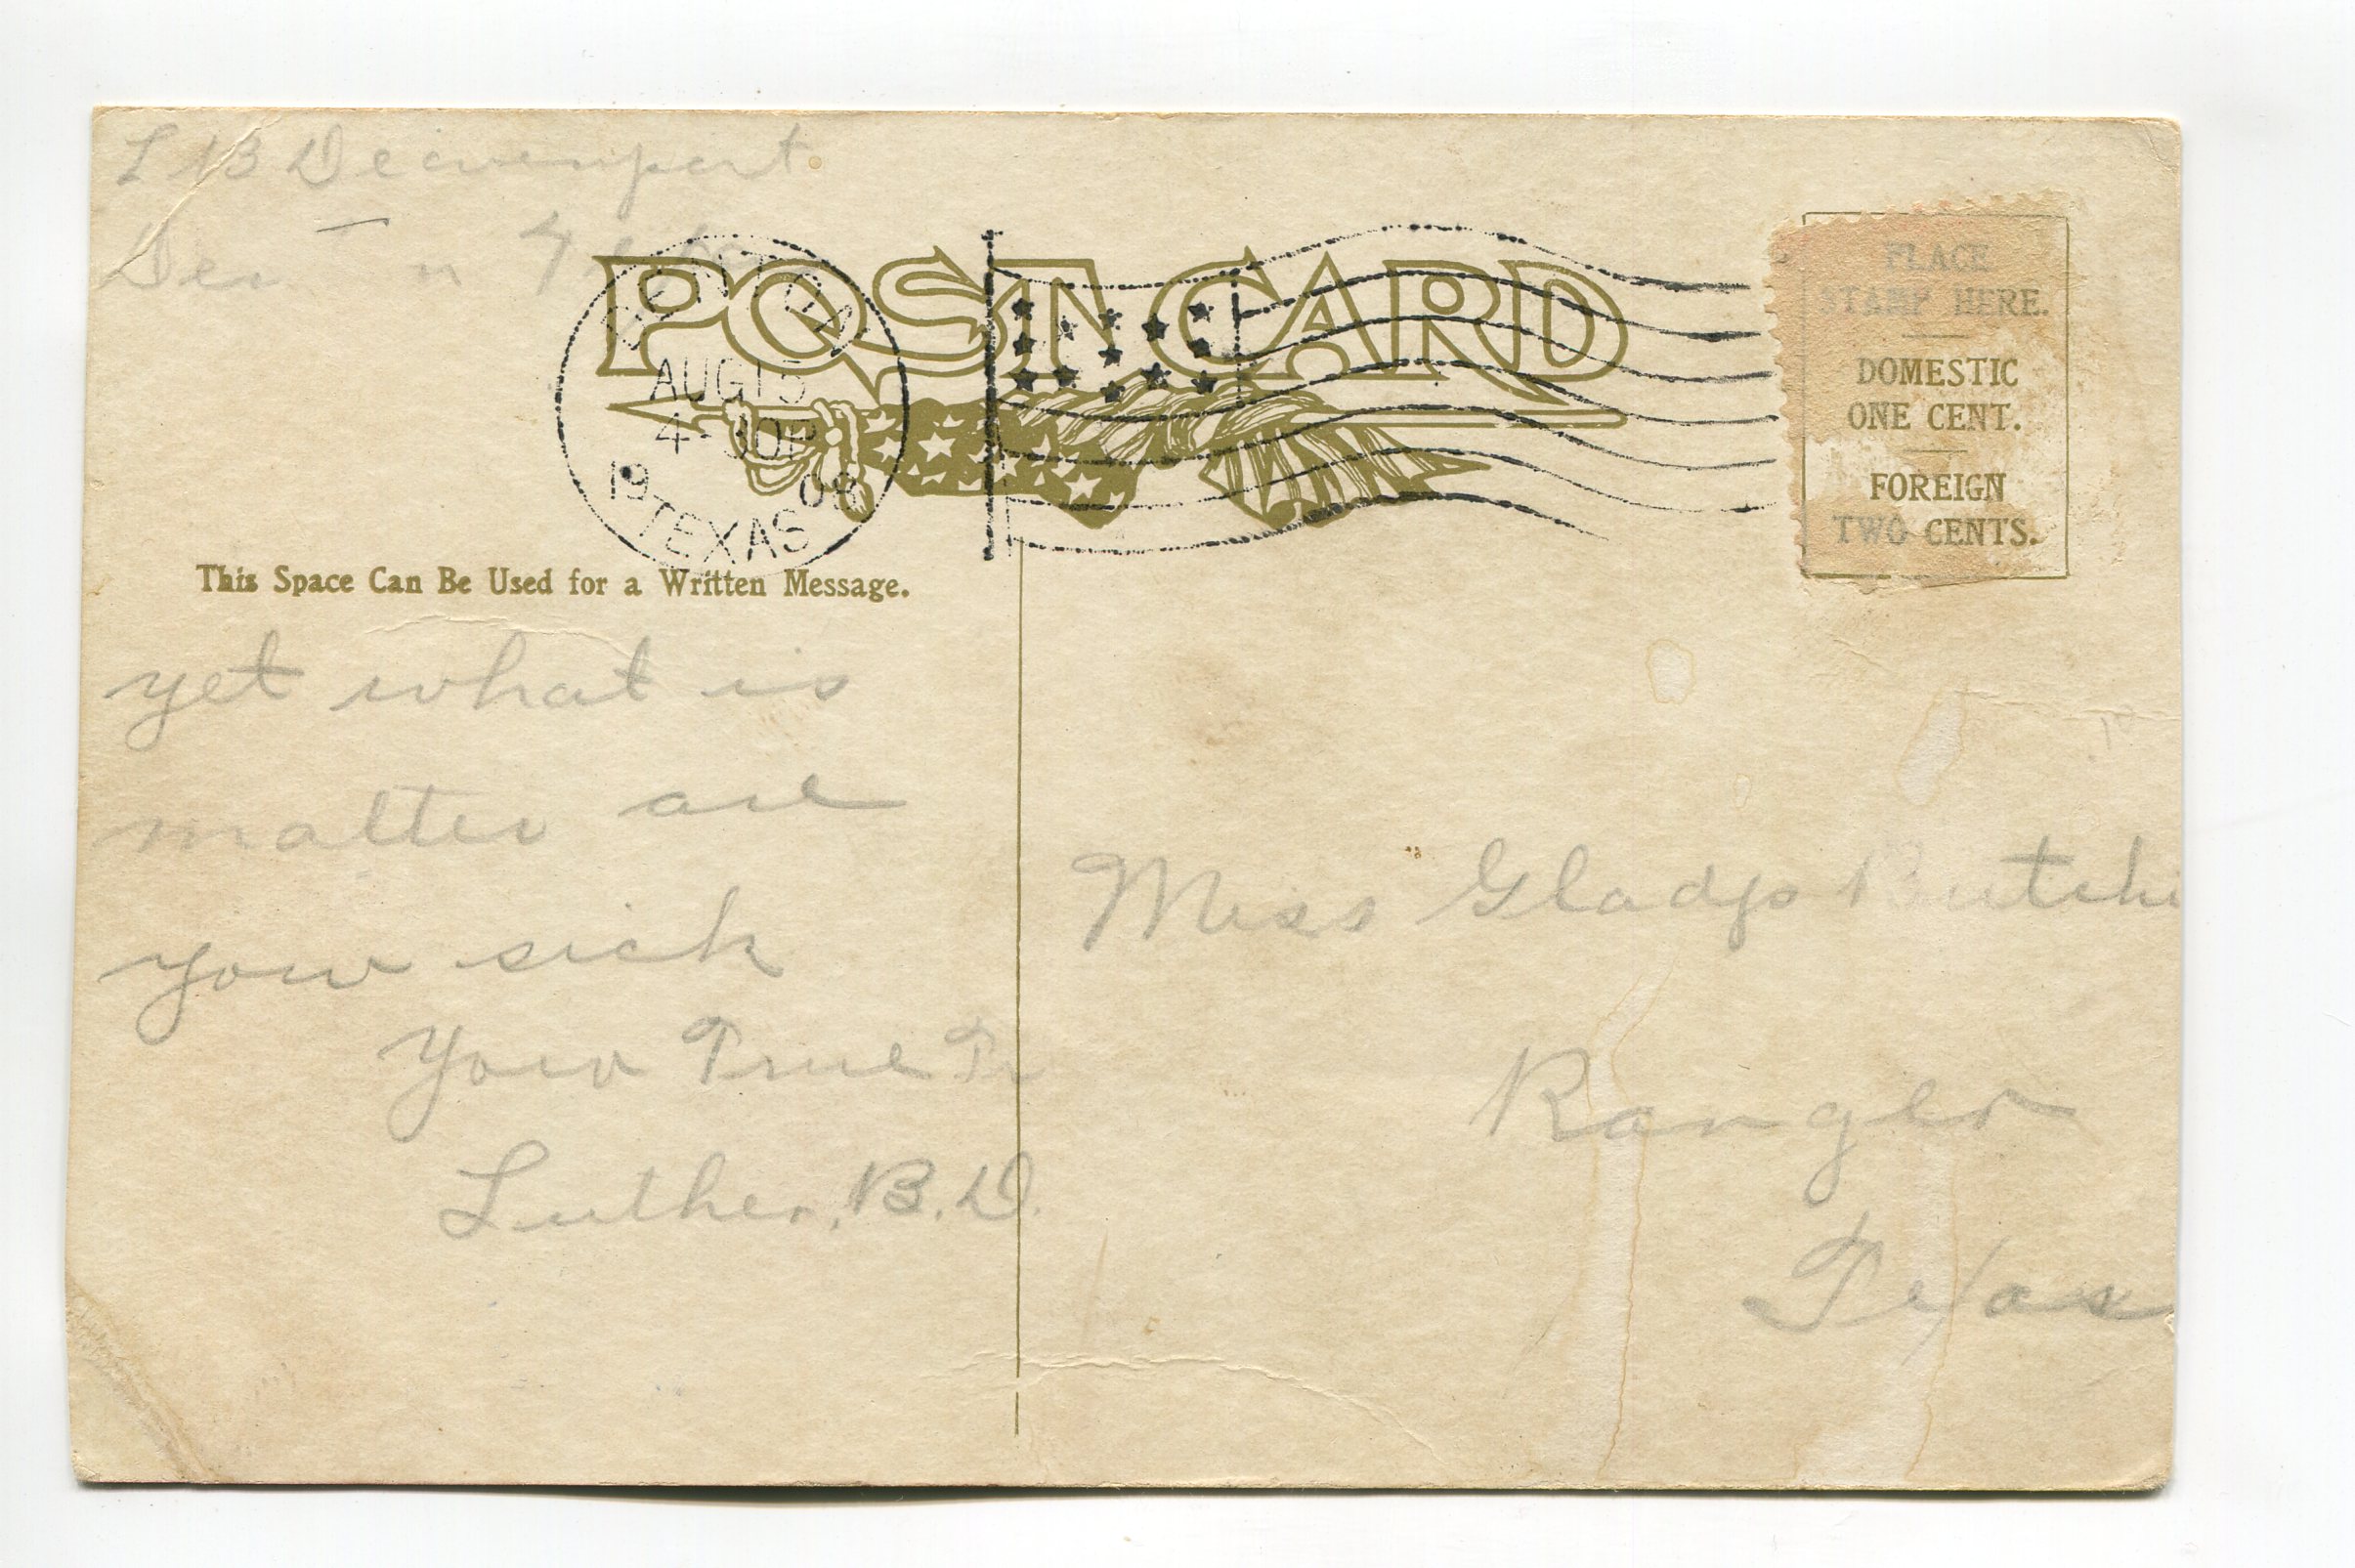 L B Deavenport
POST CARD
AUG 15
4-30P
19 08
TEXAS
PLACE
STAMP HERE.
DOMESTIC
ONE CENT.
FOREIGN
TWO CENTS.
This Space Can Be Used for a Written Message.
yet what is
matter are
your sick
Your True
Luther. B. D.
Miss Gladys
Ranger
Texas